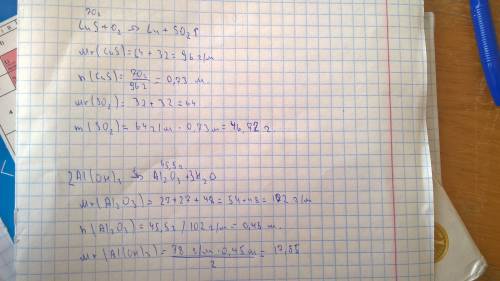 70г
CuS + O₂ => Cu + SO₂↑
Mr(CuS) = 64 + 32 = 96 г/м
n(CuS) = 70г / 96г = 0,73 м
Mr(SO₂) = 32 + 32 = 64
m(SO₂) = 64 г/м · 0,73 м = 46,72 г.
45,5г
2Al(OH)₃ => Al₂O₃ + 3H₂O
Mr(Al₂O₃) = 27 + 27 + 48 = 54 + 48 = 102 г/м
n(Al₂O₃) = 45,5г / 102 г/м = 0,45 м.
Mr(Al(OH)₃) = 78 г/м · 0,45 м / 2 = 17,55